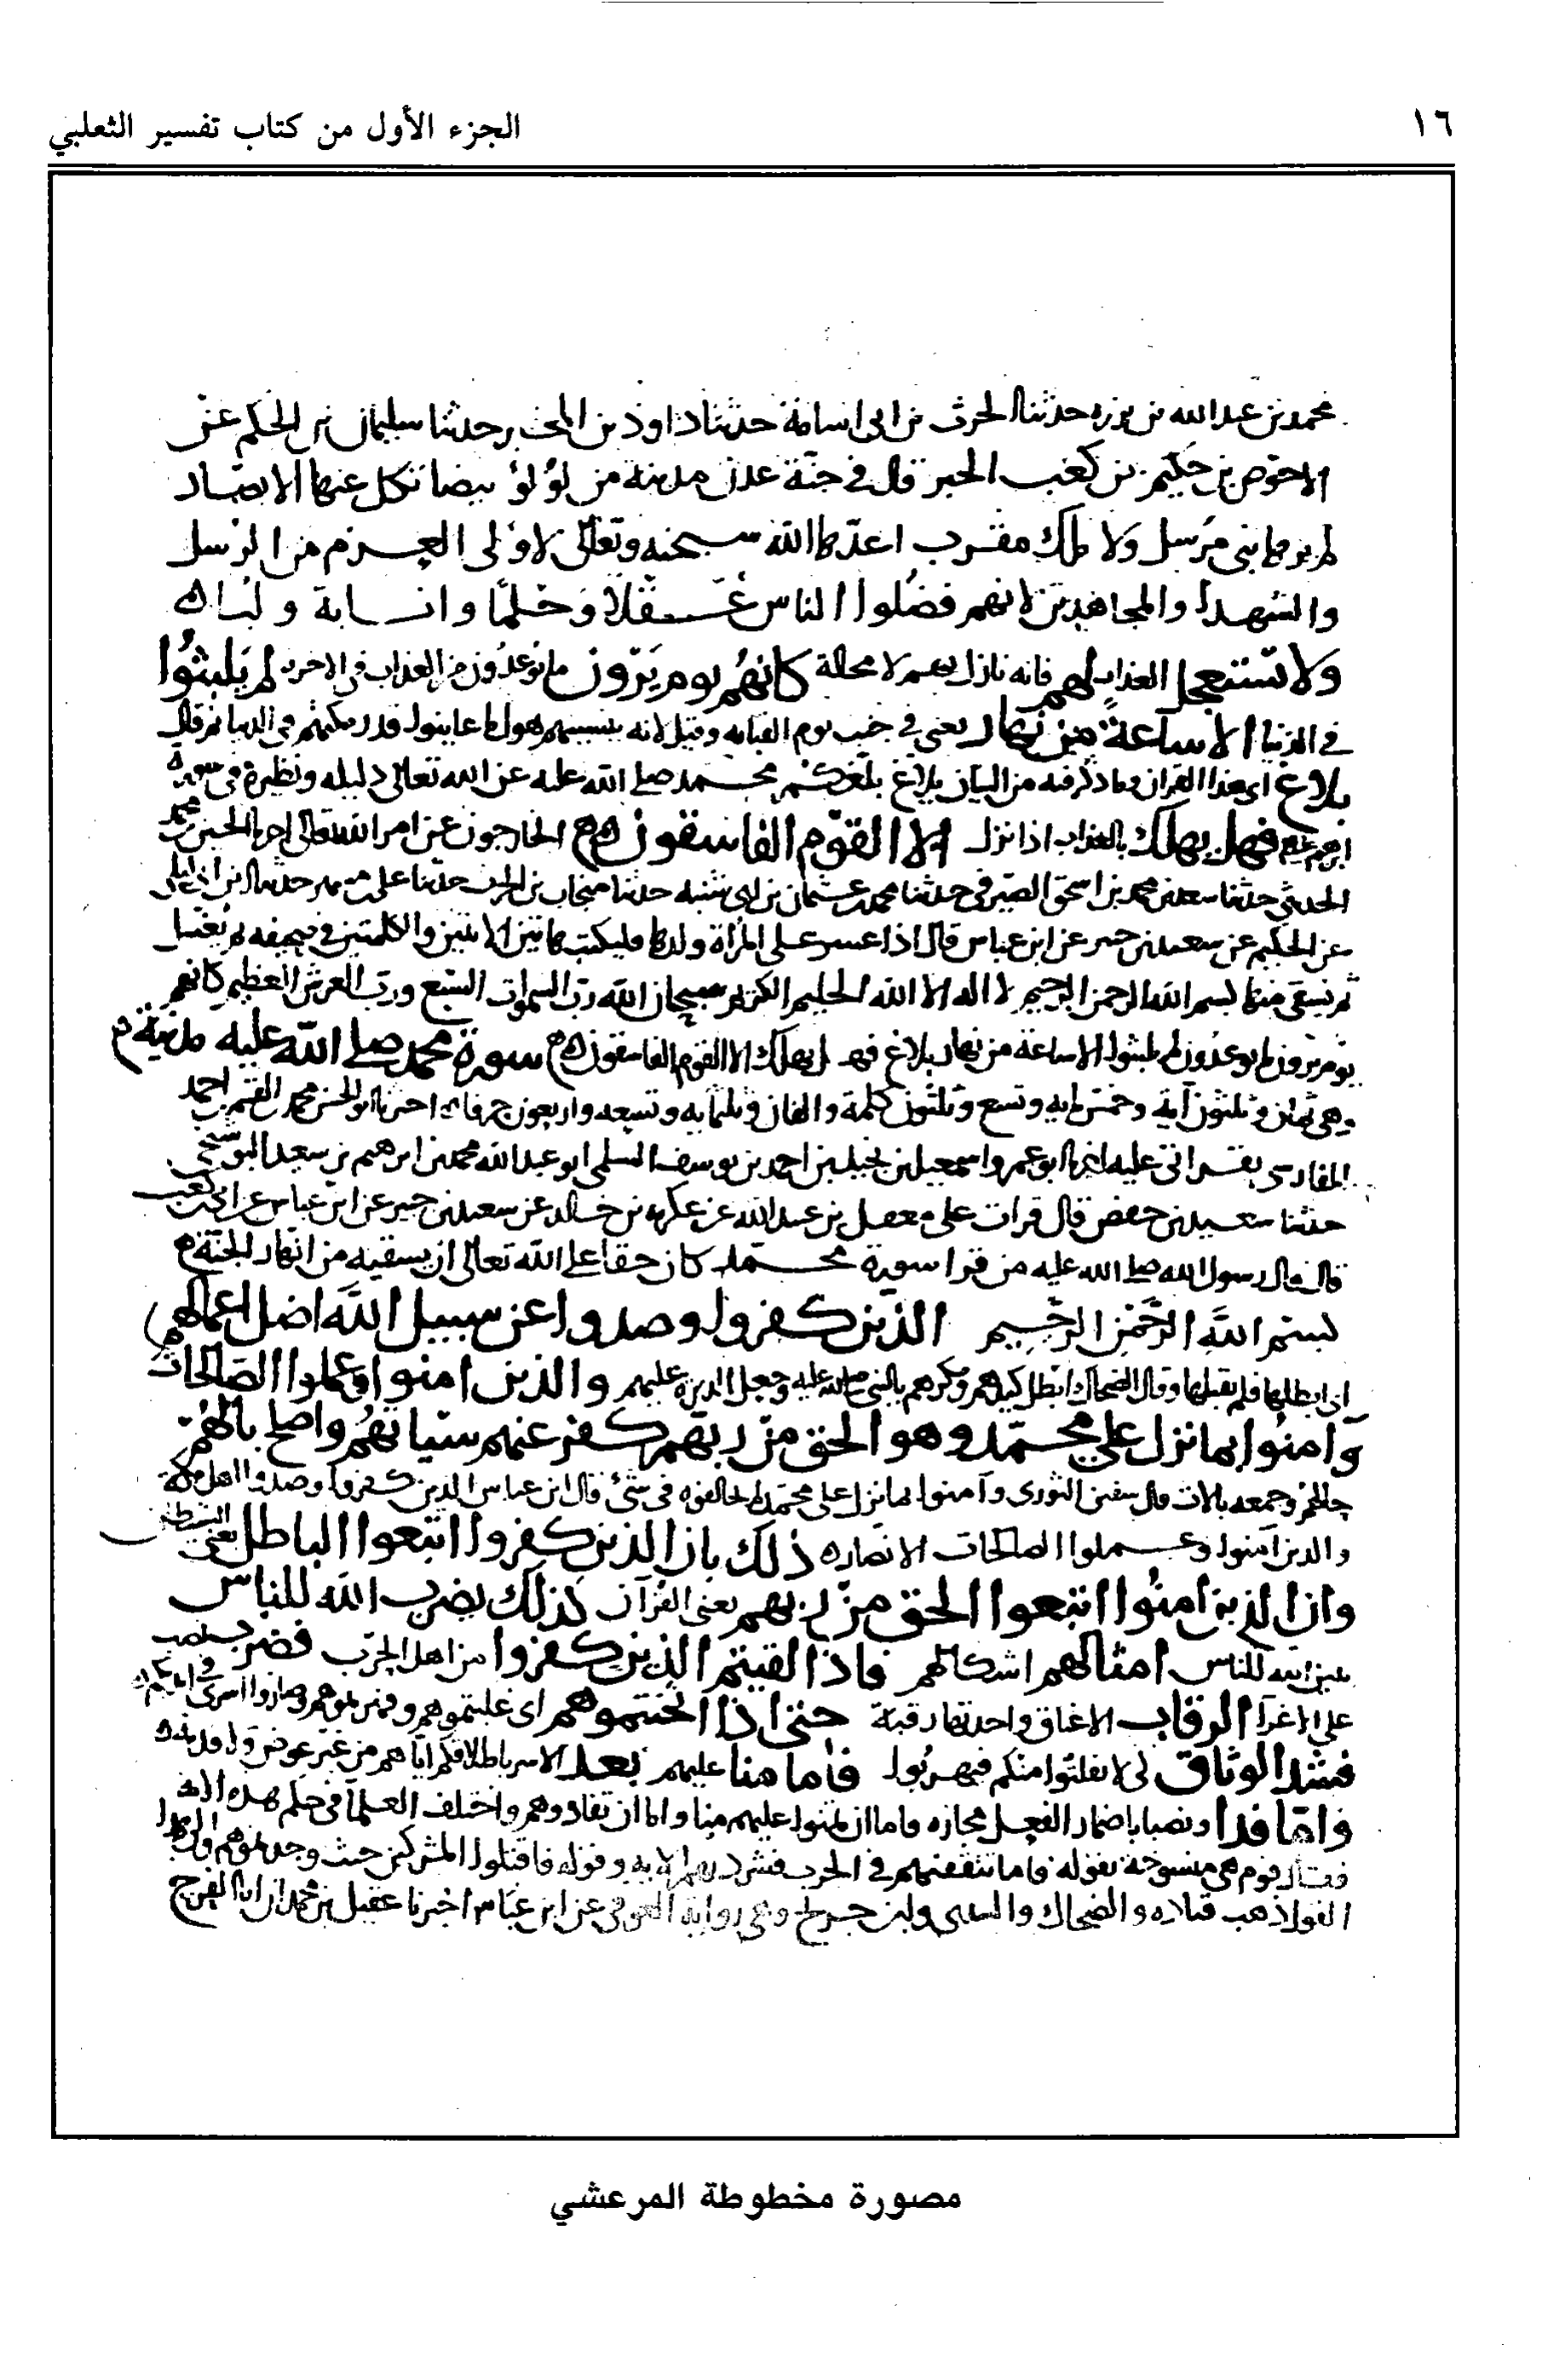 ١٦
الجزء الأول من كتاب تفسير الثعلبي
محمد بن عبد الله بن برزه حدثنا الحرث بن ابى اسامة حدثنا داوود بن المحبر حدثنا سليمان بن الحكم عن
الاحوص بن حكيم بن كعب الحبر قال فى جنة عدن مدينة من لؤلؤ بيضا تكل عنها الابصار
لم يرها نبى مرسل ولا ملك مقرب اعدها الله سبحنه وتعالى لاولى العزم من الرسل
والشهدا والمجاهدين لانهم فضلوا الناس عقلا وحلما وانابة ولبا
ولا تستعجل العذاب لهم فانه نازل بهم لا محالة كانهم يوم يرون ما يوعدون من العذاب فى الاخرة لم يلبثوا
فى الدنيا الا ساعة من نهار يعنى فى جنب يوم القيامه وقيل لانه ينسيهم هول ما عاينوا قدر مكثهم فى الدنيا ثم قال
بلاغ اى هذا القران وما ذكر فيه من البيان بلاغ بلغكم محمد صلى الله عليه عن الله تعالى دليله ونظيرة فى سورة
ابرهيم فهل يهلك بالعذاب اذا نزل الا القوم الفاسقون الخارجون عن امر الله تعالى الحسين بن محمد
الحديثى حدثنا سعيد بن محمد بن اسحق الصيرفى حدثنا محمد بن عثمان بن ابى شيبه حدثنا منجاب بن الحرث حدثنا على بن مسهر
عن الحكم عن سعيد بن جبير عن ابن عباس قال اذا عسر على المرأة ولدها فليكتب هاتين الايتين والكلمتين فى صحيفه ثم تغسل
ثم تسقى منها بسم الله الرحمن الرحيم لا اله الا الله الحليم الكريم سبحان الله رب السموات السبع ورب العرش العظيم كانهم
يوم يرون ما يوعدون لم يلبثوا الا ساعة من نهار بلاغ فهل يهلك الا القوم الفاسقون سورة محمد صلى الله عليه مدنية
وهى ثمان وثلثون آية وخمس مايه وتسع وثلثون كلمة والفان وثلثمايه وتسعه واربعون حرفا ابو الحسن محمد بن القسم بن احمد
بقراتى عليه ابو عمرو اسمعيل بن نجيد بن احمد بن يوسف السلمى ابو عبد الله محمد بن ابرهيم بن سعيد البوشنجى
حدثنا سعيد بن حفص قال قرات على معقل بن عبد الله عن عكرمه بن خالد عن سعيد بن جبير عن ابن عباس عن ابى بن كعب
قال قال رسول الله صلى الله عليه من قرا سورة محمد كان حقا على الله تعالى ان يسقيه من انهار الجنة
بسم الله الرحمن الرحيم الذين كفروا وصدوا عن سبيل الله اضل اعمالهم
اى ابطلها فلم يقبلها وقال الضحاك ابطل كيدهم ومكرهم بالنبى صلى الله عليه وجعل الديرة عليهم والذين امنوا وعملوا الصالحات
وامنوا بما نزل على محمد وهو الحق من ربهم كفر عنهم سيئاتهم واصلح بالهم
حالهم وجمعه بالات قال سفين الثورى وآمنوا بما نزل على محمد لم يخالفوه فى شئ قال ابن عباس الذين كفروا وصدوا اهل مكة
والذين آمنوا وعملوا الصالحات الانصار ذلك بان الذين كفروا اتبعوا الباطل يعنى الشيطان
وان الذين امنوا اتبعوا الحق من ربهم يعنى القرآن كذلك يضرب الله للناس
يبين الله للناس امثالهم اشكالهم فاذا لقيتم الذين كفروا من اهل الحرب فضرب نصب
على الاغرآ الرقاب الاعناق واحدتها رقبة حتى اذا اثخنتموهم اى غلبتموهم وقهرتموهم وصاروا اسرى فى
فشدوا الوثاق لى لا يفلتوا منكم فيهربوا فاما منا عليهم بعد الاسر باطلاقكم اياهم من غير عوض
واما فدا ونصبا باضمار الفعل مجازه فاما ان تمنوا عليهم منا واما ان تفادوهم واختلف العلمآ فى حكم هذه الاية
فقال قوم هى منسوخة بقوله فاما تثقفنهم فى الحرب فشرد بهم الايه وقوله فاقتلوا المشركين حيث وجدتموهم
القول ذهب قتاده والضحاك والسدى وابن جريج وهى رواية العوفى عن ابن عباس اخبرنا عقيل بن محمد ان ابا الفرج
مصورة مخطوطة المرعشي